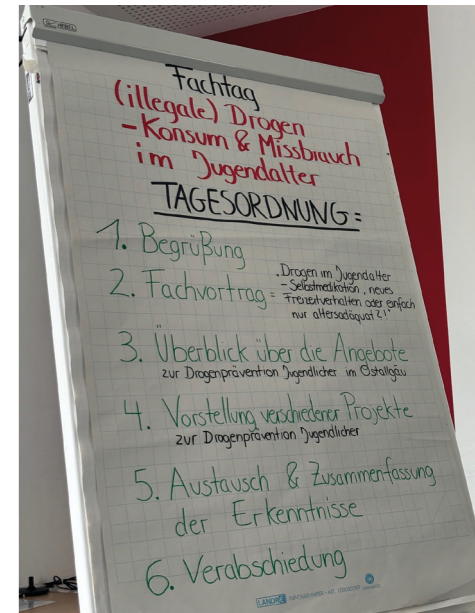 Fachtag
(illegale) Drogen
-Konsum & Missbrauch
im Jugendalter
TAGESORDNUNG =
1. Begrüßung
2. Fachvortrag = "Drogen im Jugendalter
- Selbstmedikation, neues
Freizeitverhalten oder einfach
nur altersadäquat?!"
3. Überblick über die Angebote
zur Drogenprävention Jugendlicher im Ostallgäu
4. Vorstellung verschiedener Projekte
zur Drogenprävention Jugendlicher
5. Austausch & Zusammenfassung
der Erkenntnisse
6. Verabschiedung
LANDRÉ